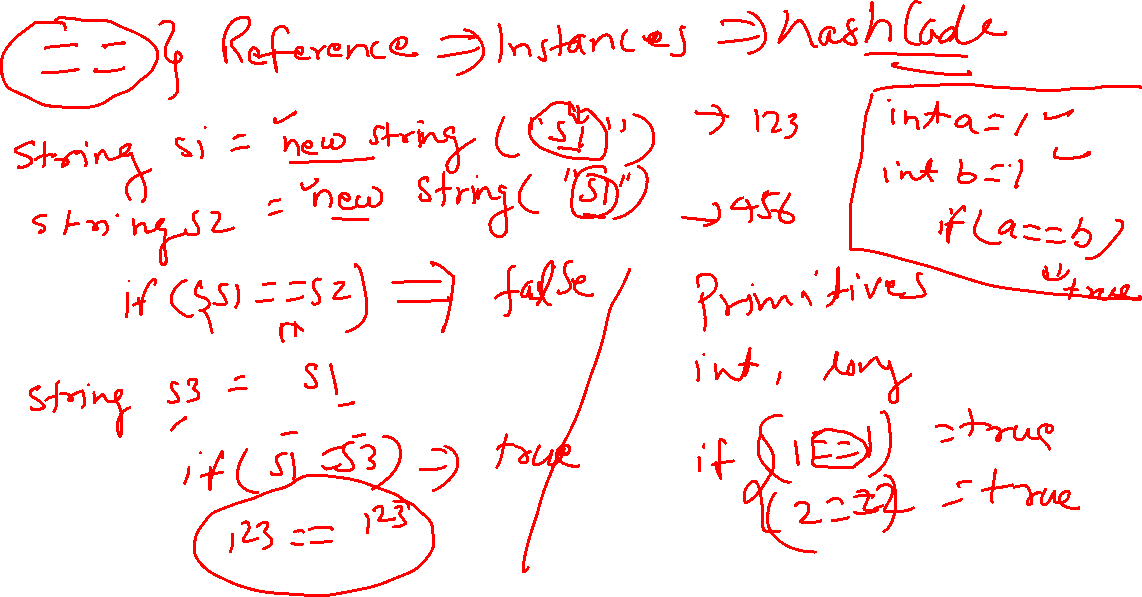 == } Reference ⇒ Instances ⇒ hashCode
String s1 = new string ("s1") → 123
string s2 = new string("s1") → 456
if (s1 == s2) ⇒ false
string s3 = s1
if (s1 = s3) ⇒ true
123 == 123
int a = 1
int b = 1
if (a == b)
↓ true
Primitives
int, long
if (1 == 1) = true
(2 == 2) = true